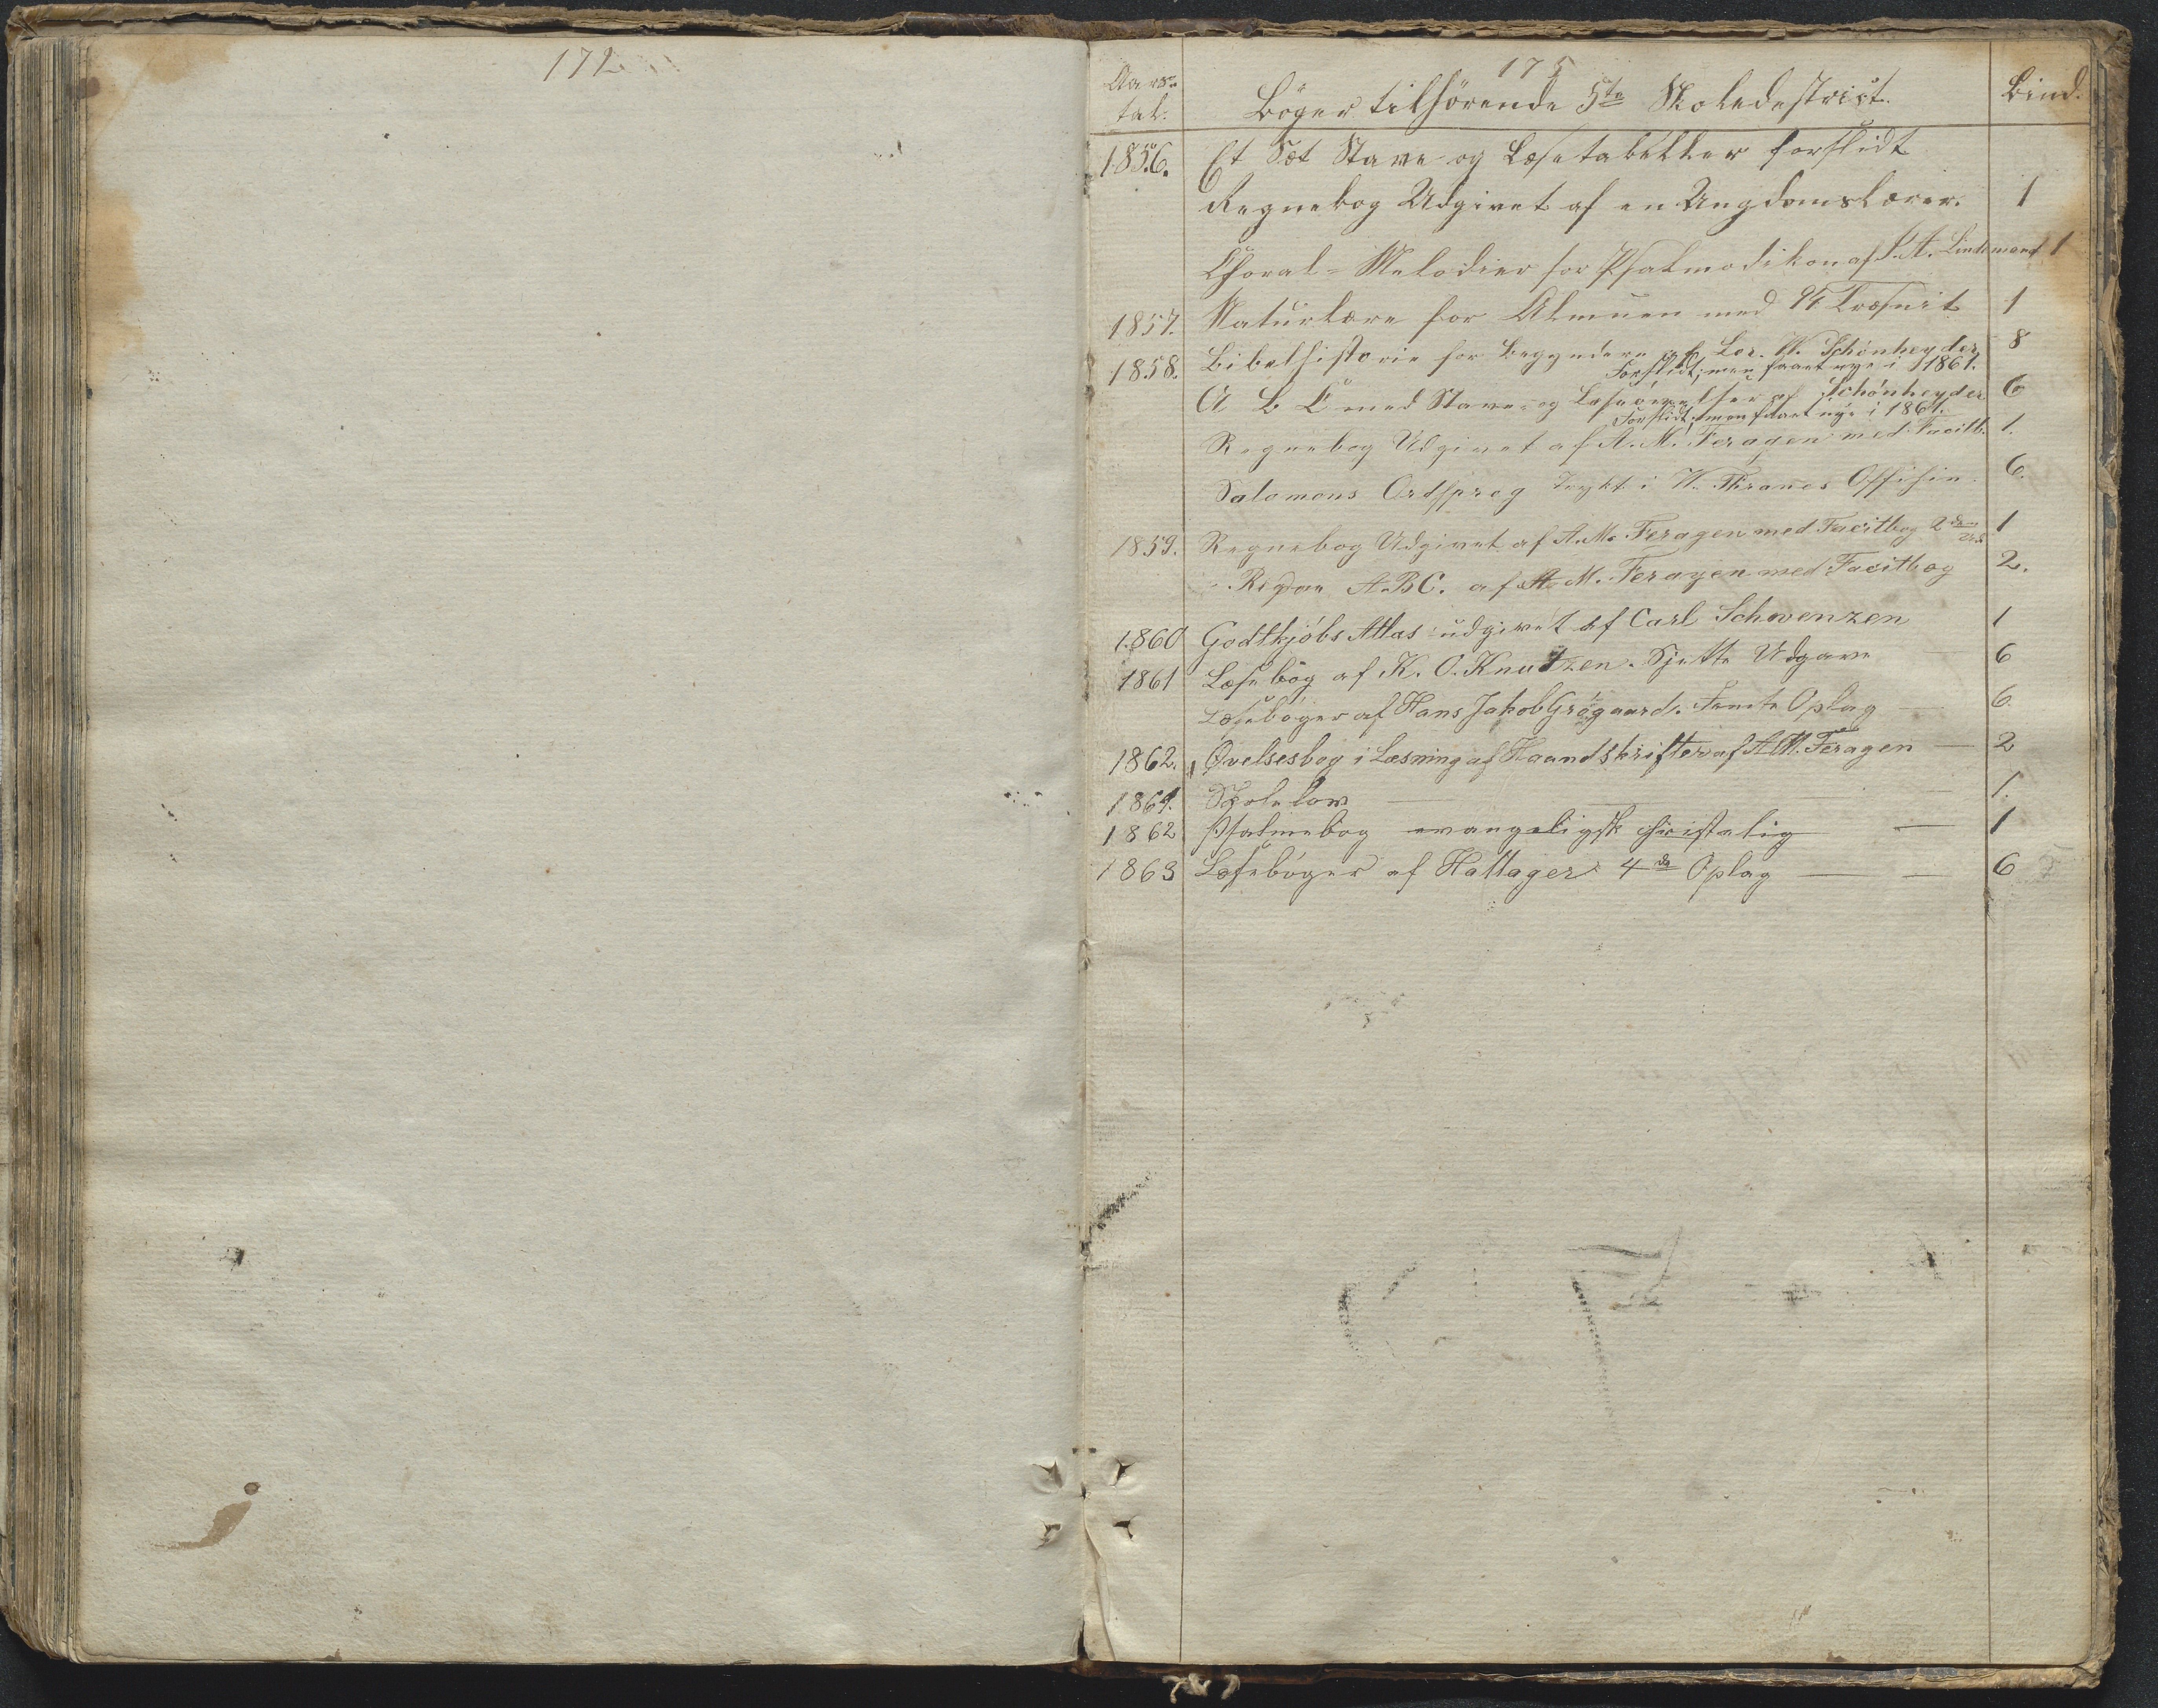 172
175
Aars-
tal.
Böger tilhörende 5te Skoledestrict.
Bind.
1856. Et Sæt Stave og Læsetabeller forslidt
Regnebog Udgivet af en Ungdomslærer. 1
Choral-Melodier for Psalmodikon af Lindemand 1
1857. Naturlære for Almuen med Træsnit 1
1858. Bibelhistorie for Begyndere af Schönheyder 8
Forslidt; men faaet nye i 1861.
A B C med Stave- og Læseøvelser af Schönheyder 6
Forslidt; men faaet nye i 1861.
Regnebog Udgivet af A. M. Feragen med Facitb. 1.
Salomons Ordsprog Trykt i Offisin. 6.
1859. Regnebog Udgivet af A. M. Feragen med Facitbog 2den 1
A.B.C. af A. M. Feragen med Facitbog 2.
1860 Godtkjöbs Atlas udgivet af Carl Schwenzen 1
1861 Læsebog af K. O. Knutzen. Sjette Udgave 6
Læsebøger af Hans Jakob Grögaard. Femte Oplag — 6
1862. Øvelsesbog i Læsning af Haandskrifter af A. M. Feragen — 2
1861. Skolelov — 1.
1862 Psalmebog evangeligsk christelig — 1
1863 Læsebøger af Hallager 4de Oplag — — 6